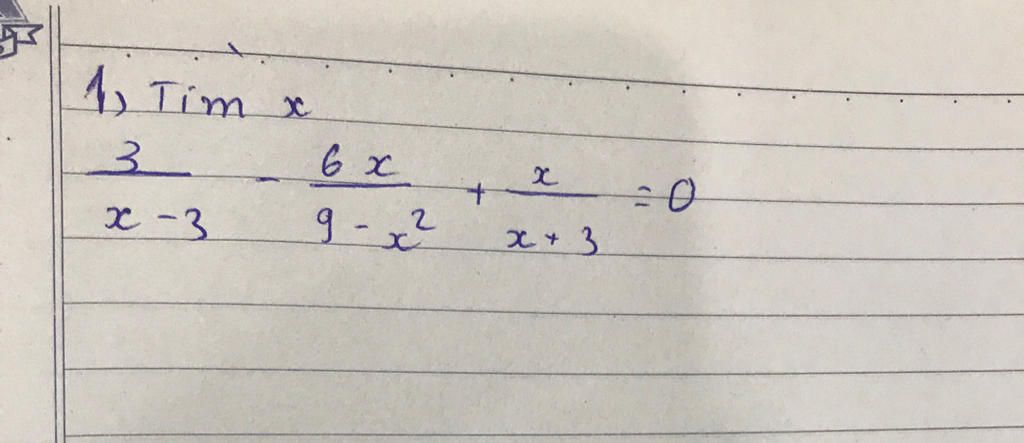 1, Tìm x
3/(x - 3) - 6x/(9 - x²) + x/(x + 3) = 0